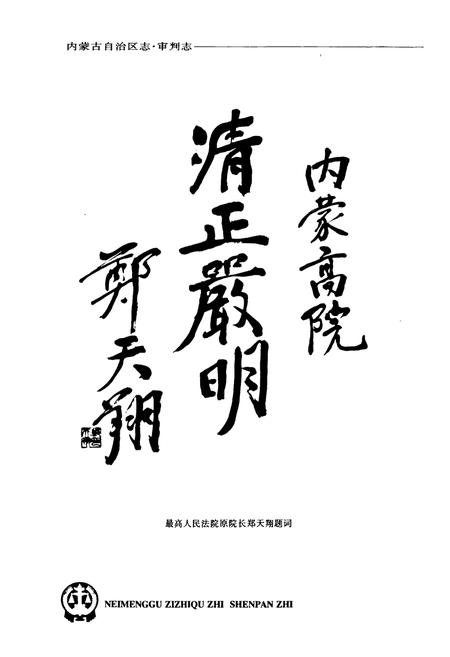 内蒙古自治区志·审判志
内蒙高院
清正嚴明
鄭天翔
最高人民法院原院长郑天翔题词
NEIMENGGU ZIZHIQU ZHI SHENPAN ZHI